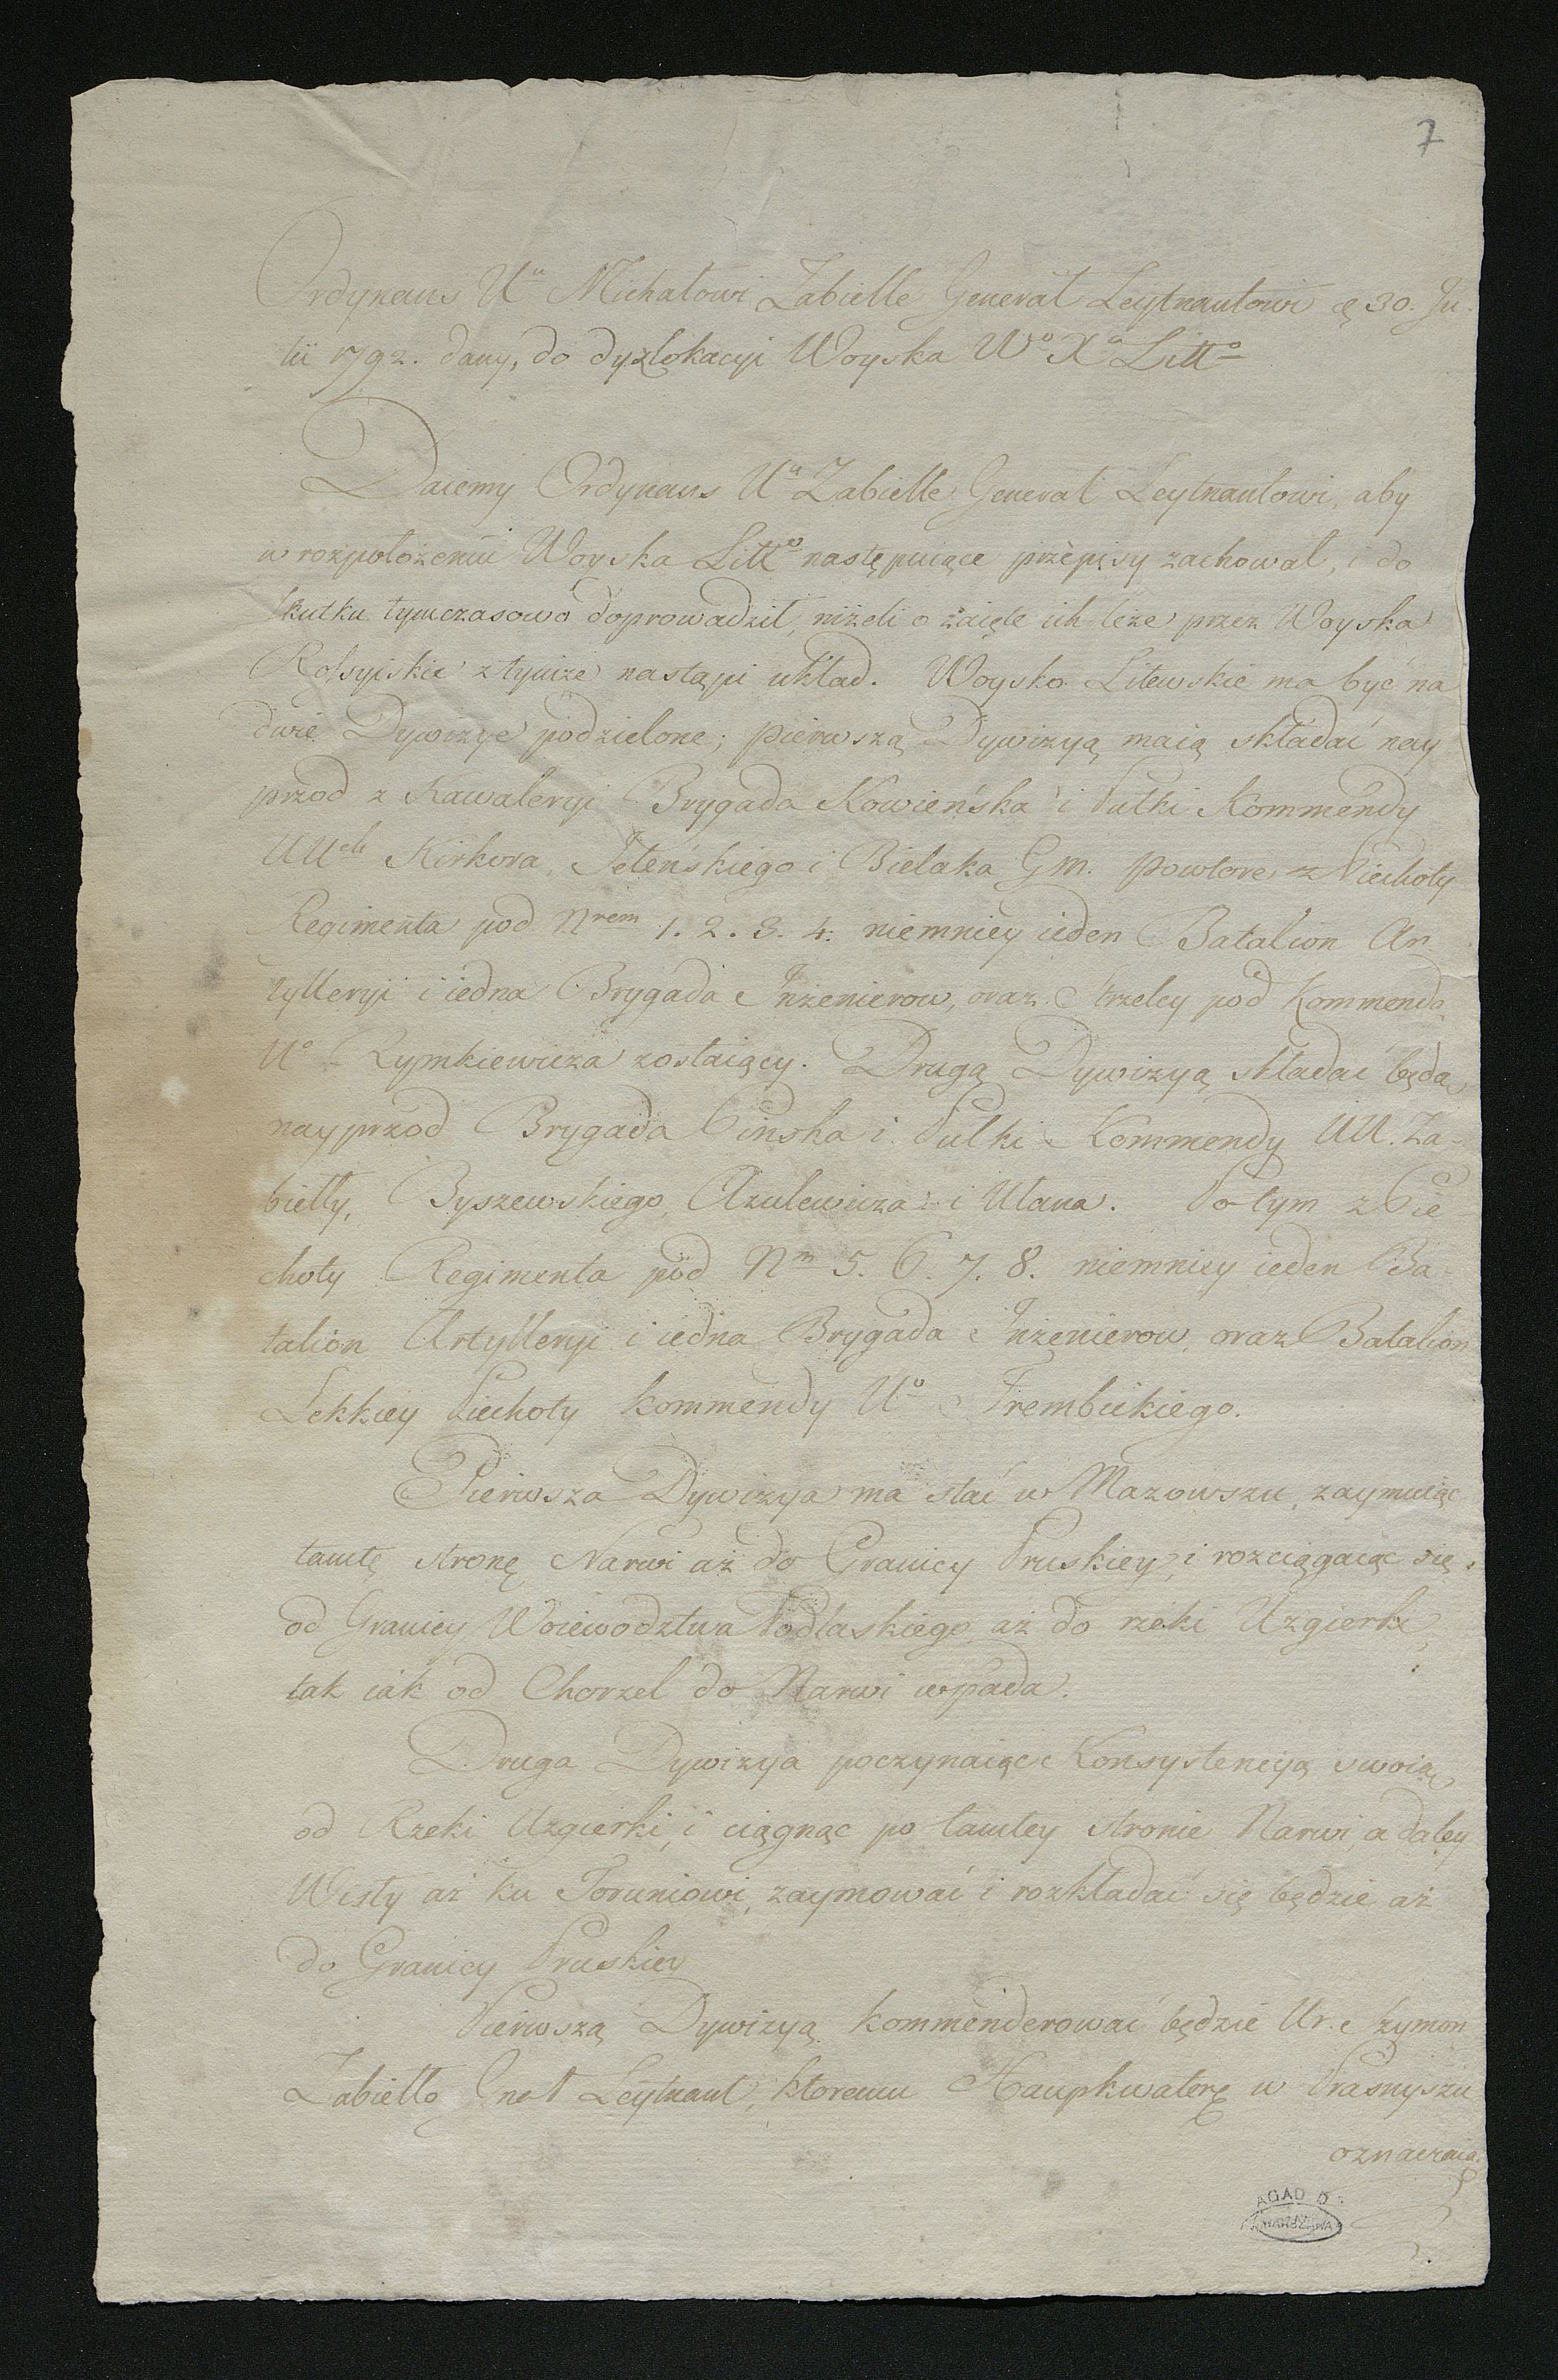 7
Ordynans Uu Michałowi Zabielle Generał Leytnantowi d 30. Ju-
lii 1792. dany, do dyzlokacyi Woyska Wo Xa Litto
Daiemy Ordynans Uu Zabielle Generał Leytnantowi, aby
w rozpołożeniu Woyska Litto następuiące przepisy zachował, i do
skutku tymczasowo doprowadził, niżeli o zaięte ich leże przez Woyska
Rossyiskie z tymiże nastąpi układ. Woysko Litewskie ma być na
dwie Dywizye podzielone; pierwszą Dywizyą maią składać nay
przod z Kawaleryi Brygada Kowieńska i Pułki Kommendy
UUch Kirkora, Jeleńskiego i Bielaka GM. powtore z Piechoty
Regimenta pod Nrem 1. 2. 3. 4. niemniey ieden Batalion Ar-
tylleryi i iedna Brygada Inżenierow, oraz Strzelcy pod Kommendą
Uo Rymkiewicza zostaiący. Drugą Dywizyą składać będą
nayprzod Brygada Pińska i Pułki Kommendy UU. Za-
biełły, Byszewskiego, Azulewicza i Ułana. Potym z Pie-
choty Regimenta pod Nm 5. 6. 7. 8. niemniey ieden Ba-
talion Artylleryi i iedna Brygada Inżenierow, oraz Batalion
Lekkiey Piechoty kommendy Uo Trembickiego.
Pierwsza Dywizya ma stać w Mazowszu, zaymuiąc
tamtę stronę Narwi aż do Granicy Pruskiey, i rozciągaiąc się
od Granicy Woiewodztwa Podlaskiego aż do rzeki Uzgierki,
tak iak od Chorzel do Narwi wpada.
Druga Dywizya poczynaiąc Konsystencyą swoią
od Rzeki Uzgierki, i ciągnąc po tamtey stronie Narwi, a daley
Wisły aż ku Toruniowi, zaymować i rozkładać się będzie aż
do Granicy Pruskiey
Pierwszą Dywizyą kommenderować będzie Ur. Szymon
Zabiełło Gnał Leytnant, ktoremu Haupkwaterę w Prasnyszu
oznaczaią
AGAD
WARSZAWA